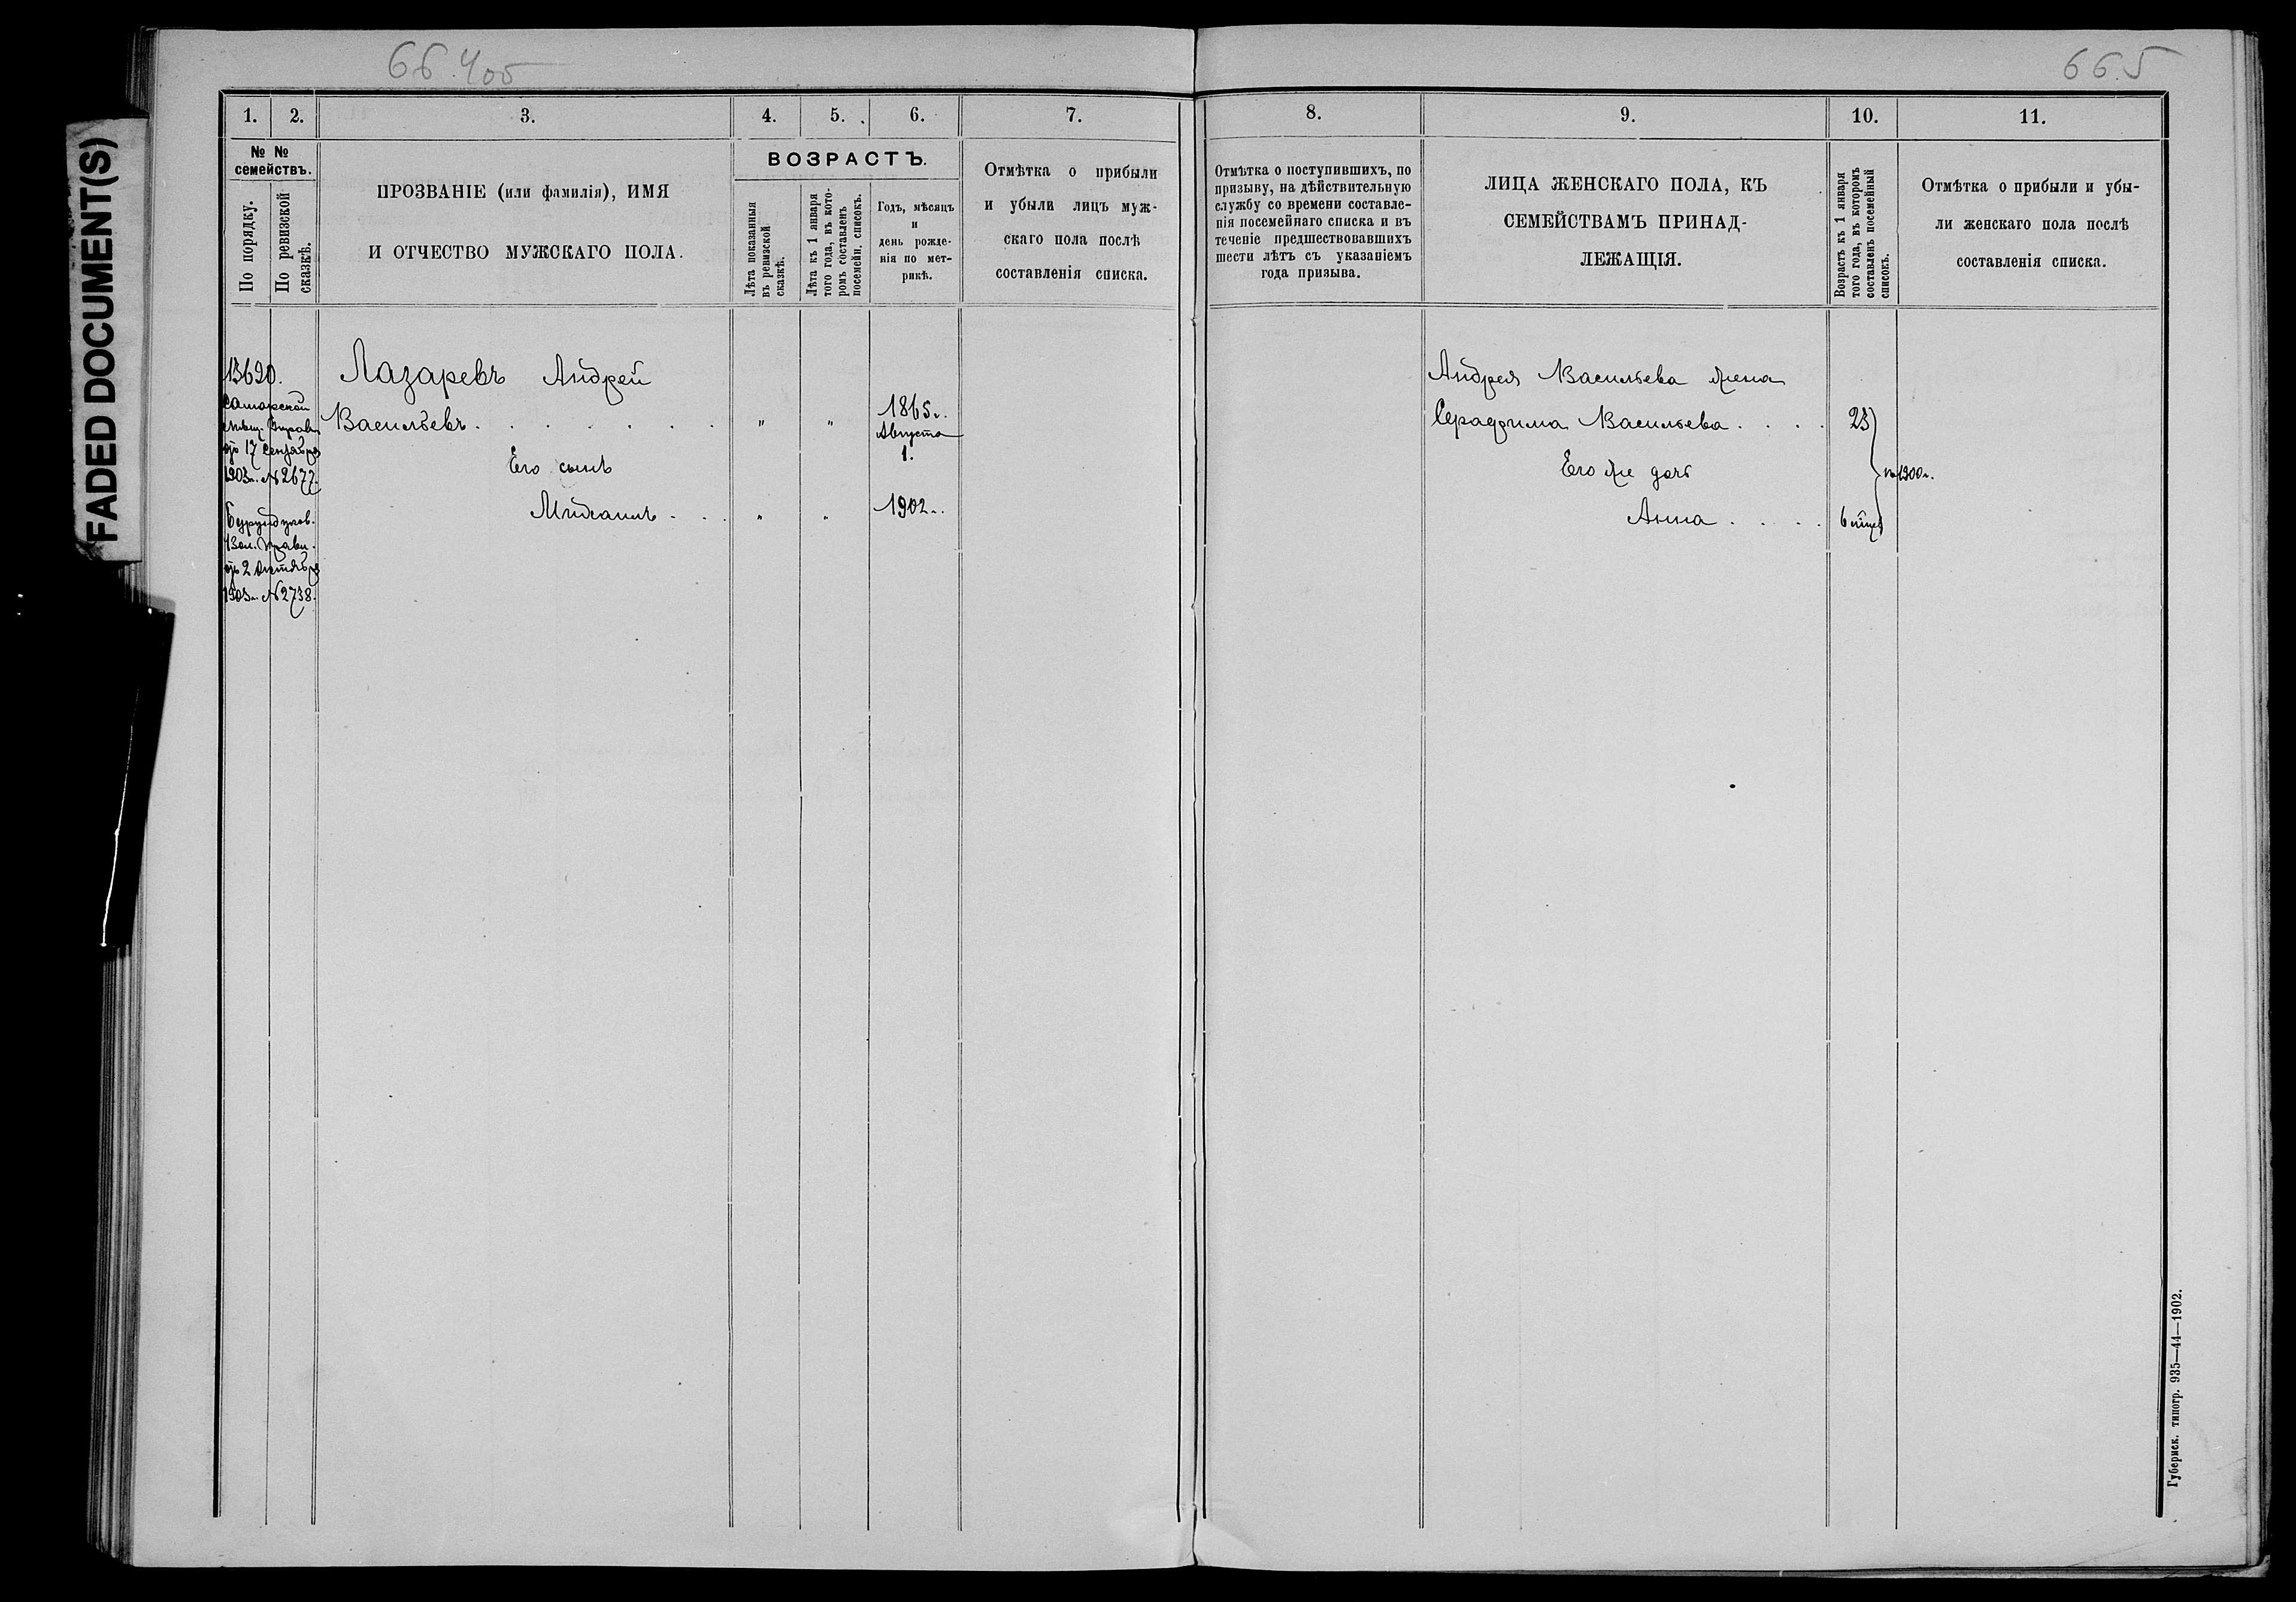 FADED DOCUMENT(S)
66 об
665
1. 2. 3. 4. 5. 6. 7.
№ №
семействъ.
По порядку.
По ревизской
сказкѣ.
ПРОЗВАНІЕ (или фамилія), ИМЯ
И ОТЧЕСТВО МУЖСКАГО ПОЛА.
ВОЗРАСТЪ.
Лѣта показанныя
въ ревизской
сказкѣ.
Лѣта къ 1 января
того года, въ кото-
ромъ составленъ
посемейн. списокъ.
Годъ, мѣсяцъ
и
день рожде-
нія по мет-
рикѣ.
Отмѣтка о прибыли
и убыли лицъ муж-
скаго пола послѣ
составленія списка.
13620.
Самарской
мѣщ. Управы
отъ 17 Сентября
1903г. № 2677.
Вол. Правл.
отъ 2 Октября
1903г. № 2738.
Лазаревъ Андрей
Васильевъ . . . . . . . " "
1865г.
Августа
1.
Его сынъ
Михаилъ . . . " " 1902г.
8. 9. 10. 11.
Отмѣтка о поступившихъ, по
призыву, на дѣйствительную
службу со времени составле-
нія посемейнаго списка и въ
теченіе предшествовавшихъ
шести лѣтъ съ указаніемъ
года призыва.
ЛИЦА ЖЕНСКАГО ПОЛА, КЪ
СЕМЕЙСТВАМЪ ПРИНАД-
ЛЕЖАЩІЯ.
Возрастъ къ 1 января
того года, въ которомъ
составленъ посемейный
списокъ.
Отмѣтка о прибыли и убы-
ли женскаго пола послѣ
составленія списка.
Андрея Васильева жена
Серафима Васильева . . . . 23
Его же дочь
1900г.
Анна . . . . 6 мѣс.
Губернск. типогр. 935—44—1902.